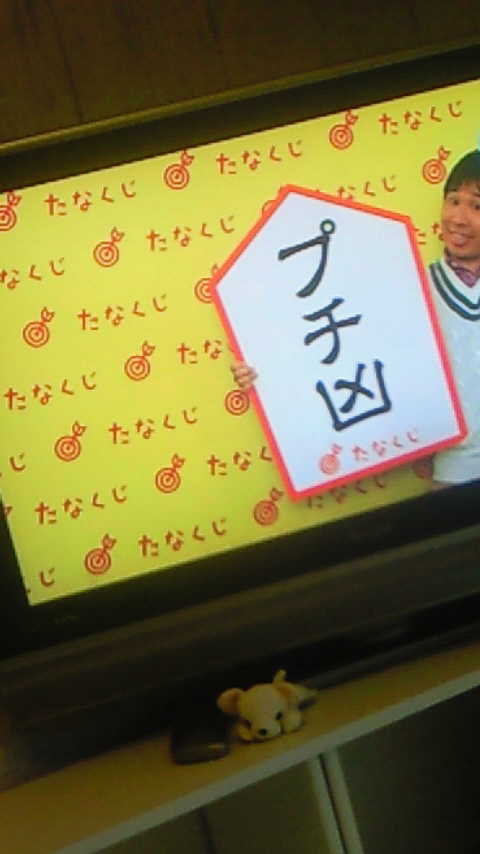 たなくじ
たなくじ
たなくじ
たなくじ
たなくじ
なくじ
たなくじ
たな
たなくじ
たなくじ
たなく
たなくじ
たなくじ
たなくじ
プチ凶
たなくじ